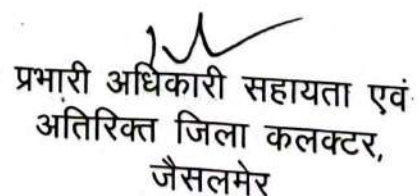 प्रभारी अधिकारी सहायता एवं
अतिरिक्त जिला कलक्टर,
जैसलमेर